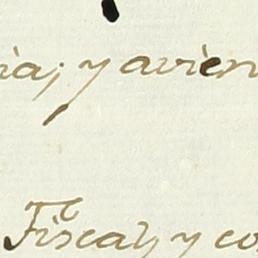 ia; y avien
Fiscal, y co